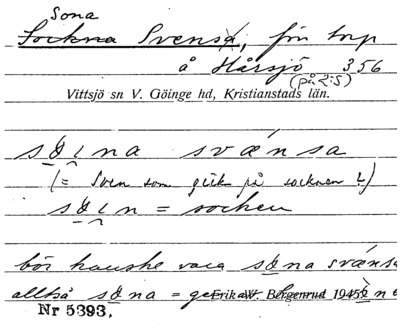 Sona
Sockna Svensa, förr torp
å Hårsjö 356
(på 2:5)
Vittsjö sn V. Göinge hd, Kristianstads län.
söina svänsa
(= Sven som gick på socknen?)
söin = socken
bör kanske vara sona svänsa
alltså sona = Erika W. Bergenrud 1945
Nr 5393.